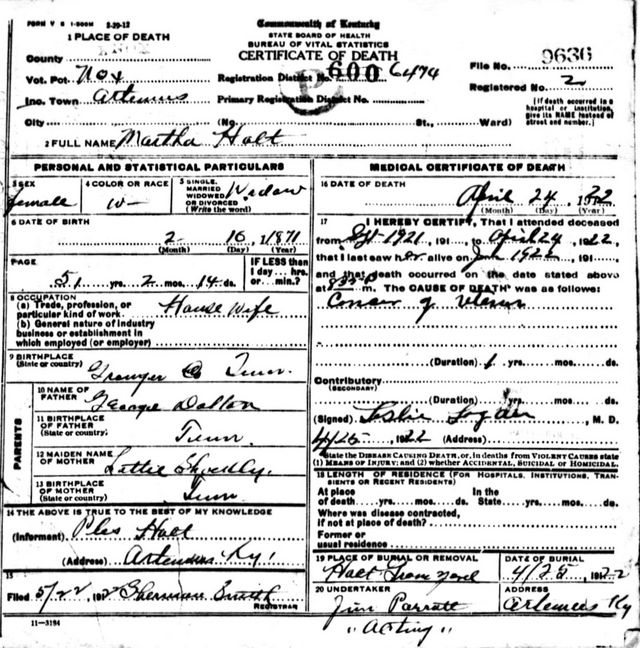 FORM V S 1-500M 3-29-12
Commonwealth of Kentucky
STATE BOARD OF HEALTH
BUREAU OF VITAL STATISTICS
CERTIFICATE OF DEATH
1 PLACE OF DEATH
KNOX
County
Vot. Pct Nox
Inc. Town Artemus
City (No. St., Ward)
Registration District No. 600 6474
Primary Registration District No.
File No. 9636
Registered No. 2
(If death occurred in a hospital or institution, give its NAME instead of street and number.)
2 FULL NAME Martha Holt
PERSONAL AND STATISTICAL PARTICULARS
3 SEX female
4 COLOR OR RACE W
5 SINGLE, MARRIED WIDOWED OR DIVORCED (Write the word) Widow
6 DATE OF BIRTH
2 10, 1871
(Month) (Day) (Year)
AGE
51 yrs. 2 mos. 14 ds.
IF LESS then 1 day... hrs. or... min.?
8 OCCUPATION
(a) Trade, profession, or particular kind of work House Wife
(b) General nature of industry business or establishment in which employed (or employer)
9 BIRTHPLACE
(State or country) Co Tenn.
PARENTS
10 NAME OF FATHER George Dalton
11 BIRTHPLACE OF FATHER
(State or country) Tenn
12 MAIDEN NAME OF MOTHER
13 BIRTHPLACE OF MOTHER
(State or country) Tenn
14 THE ABOVE IS TRUE TO THE BEST OF MY KNOWLEDGE
(Informant) Ples Holt
(Address) Artemus Ky.
15
Filed 5/22, 192 Sherman Smith
REGISTRAR
11-3184
MEDICAL CERTIFICATE OF DEATH
16 DATE OF DEATH
April 24 22
(Month) (Day) (Year)
17 I HEREBY CERTIFY, That I attended deceased
from Sept 1921, 191 to April 24, 1922,
that I last saw her alive on 1922, 191
and that death occurred on the date stated above
at m. The CAUSE OF DEATH was as follows:
Cancer of
(Duration) 1 yrs. mos. ds.
Contributory
(SECONDARY)
(Duration) yrs. mos. ds.
(Signed) Leslie Logan, M. D.
4/25, 1922 (Address)
State the DISEASE CAUSING DEATH, or, in deaths from VIOLENT CAUSES state (1) MEANS OF INJURY; and (2) whether ACCIDENTAL, SUICIDAL OR HOMICIDAL.
18 LENGTH OF RESIDENCE (FOR HOSPITALS, INSTITUTIONS, TRANSIENTS OR RECENT RESIDENTS)
At place of death yrs. mos. ds. In the State yrs. mos. ds.
Where was disease contracted, if not at place of death?
Former or usual residence
19 PLACE OF BURIAL OR REMOVAL
Holt Grave Yard
DATE OF BURIAL
4/25, 1922
20 UNDERTAKER
Jim Parrott
"Acting"
ADDRESS
Artemus Ky